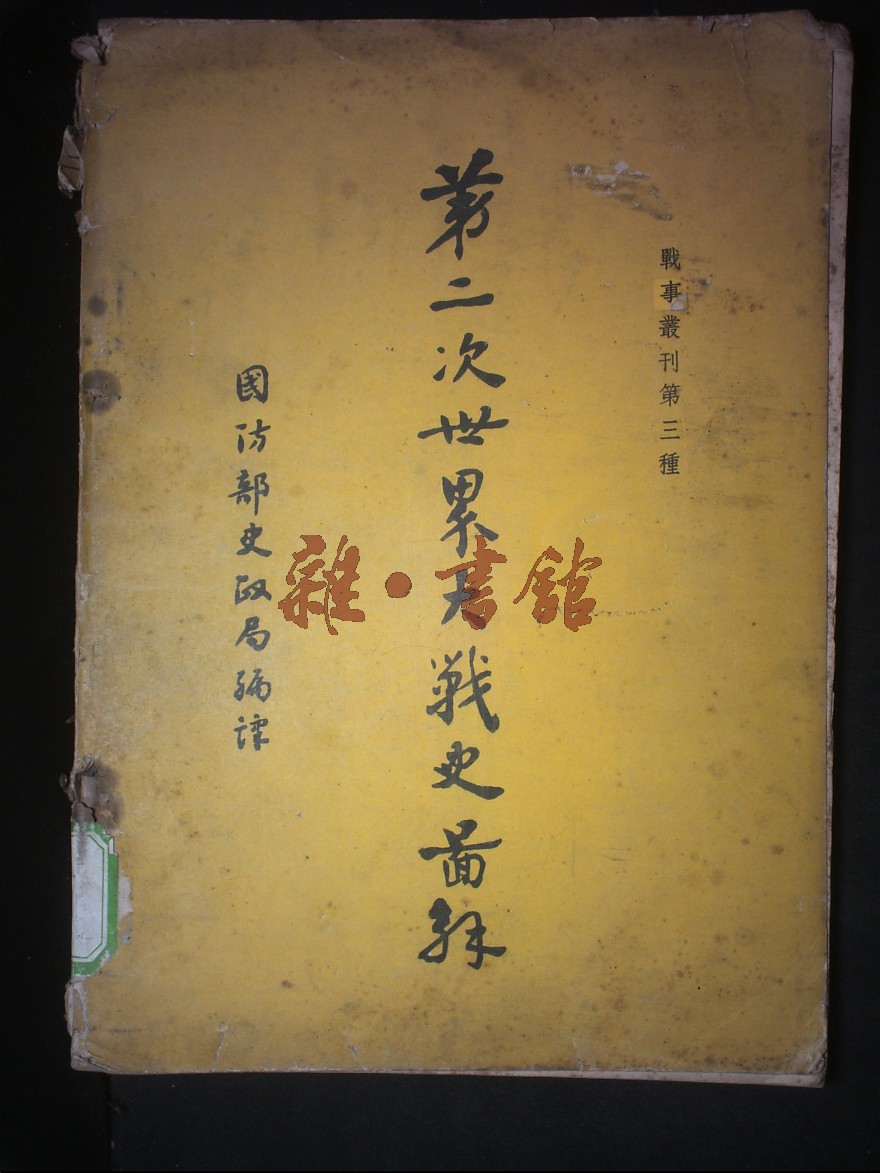 戰事叢刊第三種
第二次世界大戰史啚解
國防部史政局編譯
雜·書館